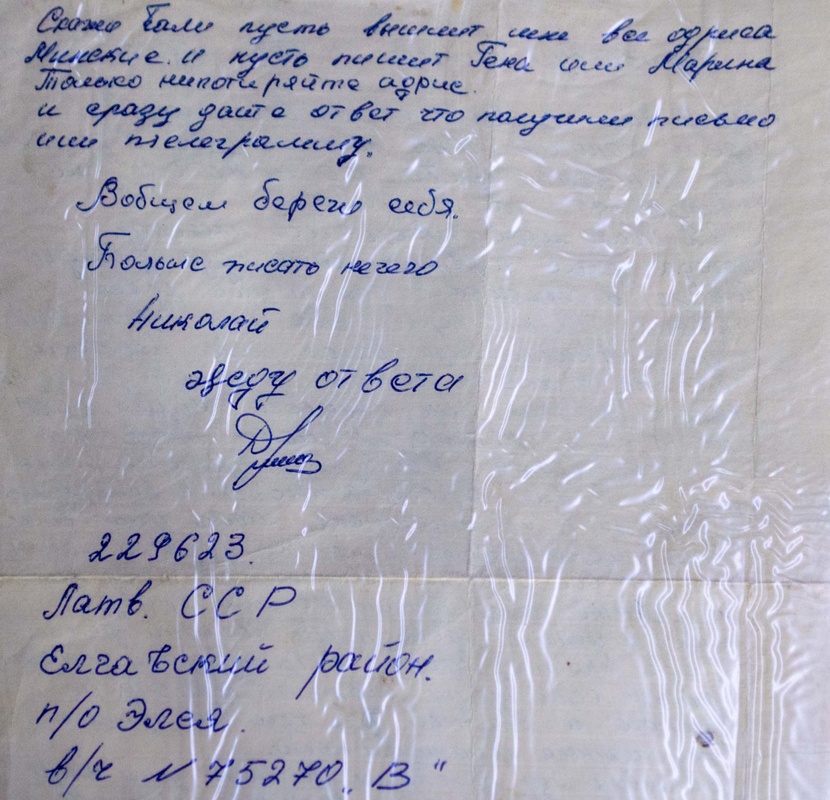 Скажи Гали пусть вышлит мне все адриса
Минские. и пусть пишит Гена или Марина
Только нипотиряйте адрис.
и сразу дайте ответ что получили письмо
или телеграмму.
Вобщем береги себя.
Больше писать нечего
Николай
жду ответа
229623.
Латв. ССР
Елгавский район.
п/о Элея.
в/ч № 75270 „В"